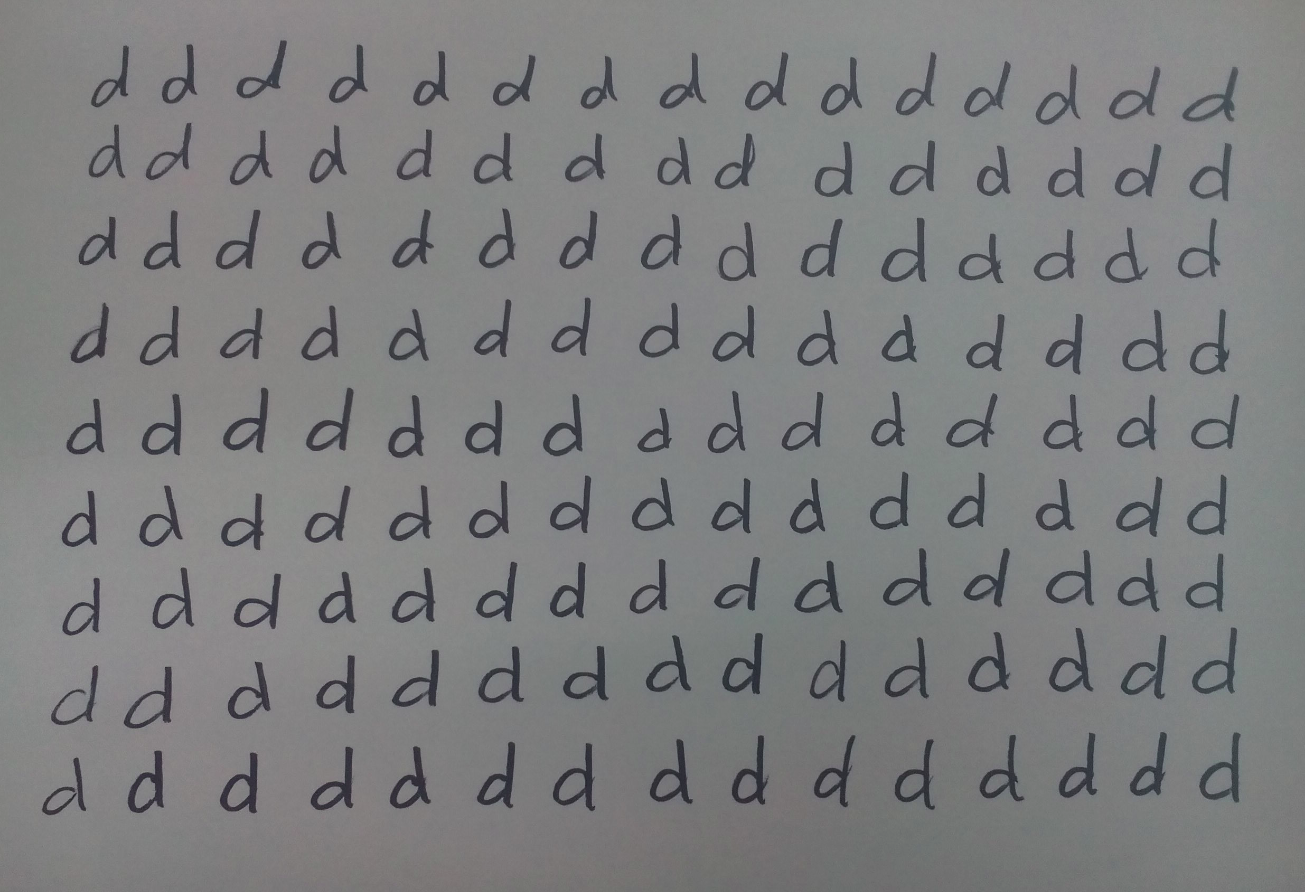 d d d d d d d d d d d d d d d
d d d d d d d d d d d d d d d
d d d d d d d d d d d d d d d
d d d d d d d d d d d d d d d
d d d d d d d d d d d d d d d
d d d d d d d d d d d d d d d
d d d d d d d d d d d d d d d
d d d d d d d d d d d d d d d
d d d d d d d d d d d d d d d